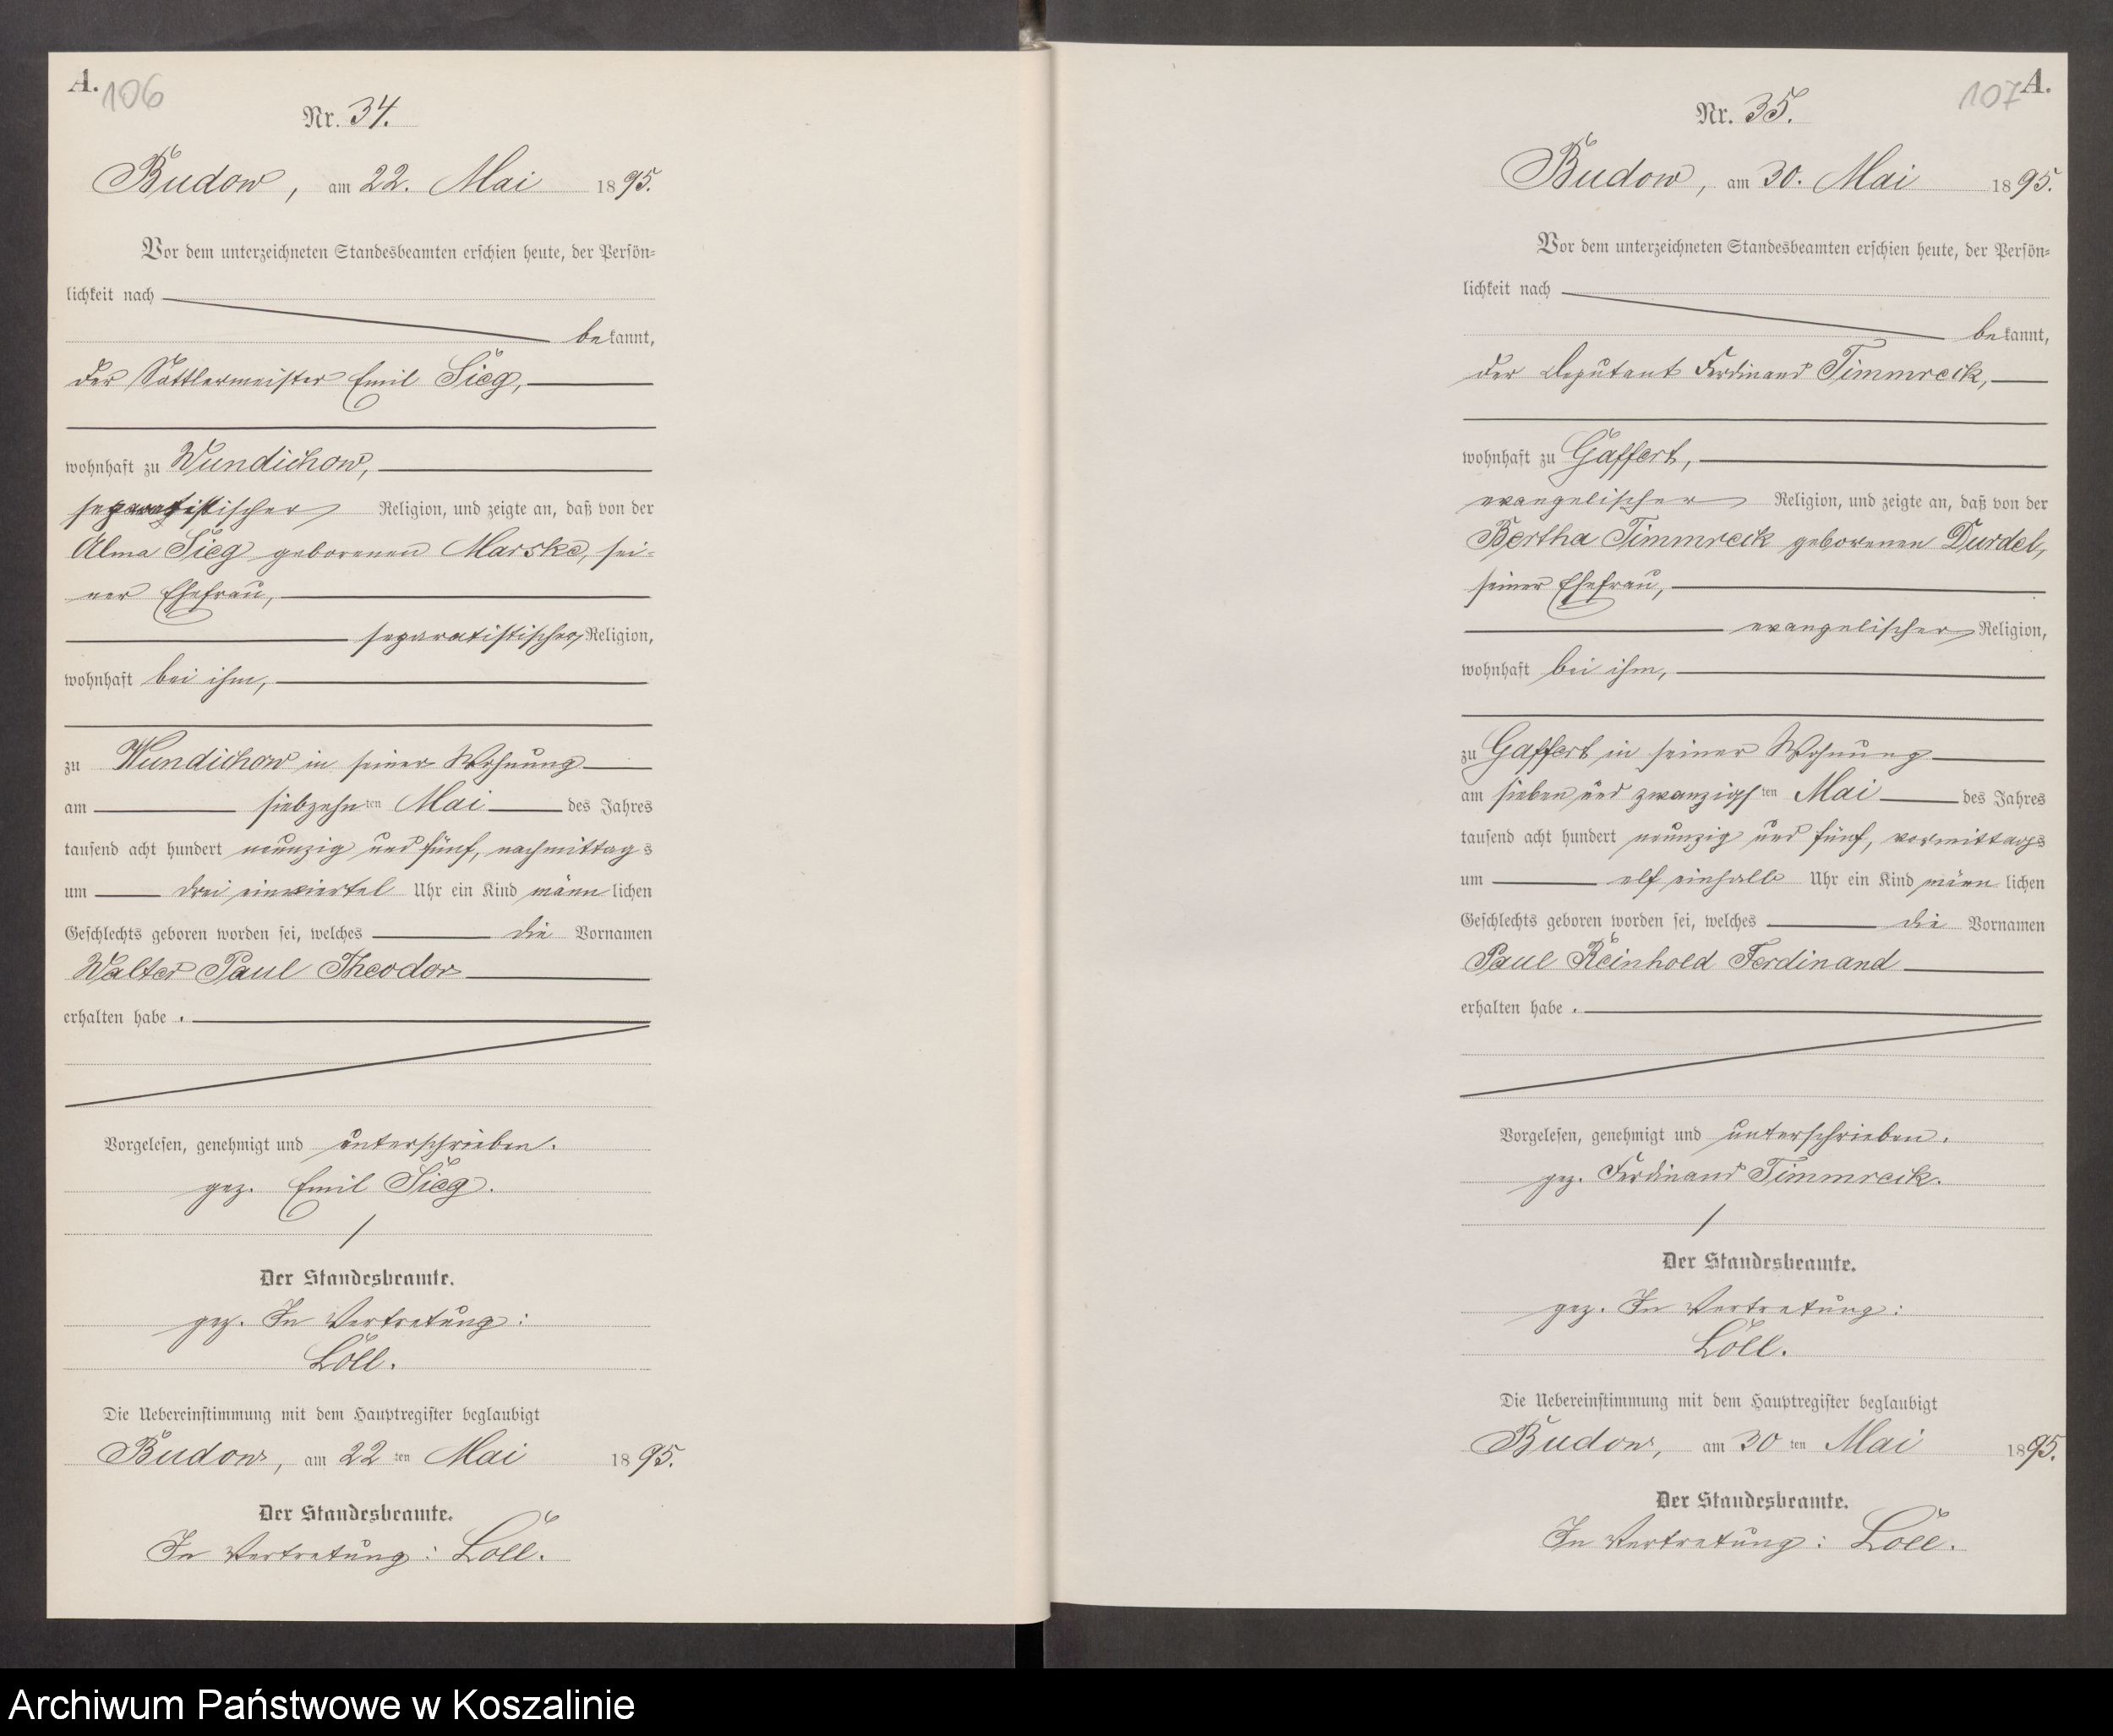 A.
106
Nr. 34.
Budow, am 22. Mai 1895.
Vor dem unterzeichneten Standesbeamten erschien heute, der Persön-
lichkeit nach
bekannt,
der Sattlermeister Emil Sieg,
wohnhaft zu Wundichow,
separatistischer Religion, und zeigte an, daß von der
Alma Sieg geborenen Marske, sei-
ner Ehefrau,
separatistischer Religion,
wohnhaft bei ihm,
zu Wundichow in seiner Wohnung
am siebzehnten Mai des Jahres
tausend acht hundert neunzig und fünf, nachmittags
um drei einviertel Uhr ein Kind männlichen
Geschlechts geboren worden sei, welches die Vornamen
Walter Paul Theodor
erhalten habe.
Vorgelesen, genehmigt und unterschrieben.
gez. Emil Sieg.
Der Standesbeamte.
gez. In Vertretung:
Löll.
Die Uebereinstimmung mit dem Hauptregister beglaubigt
Budow, am 22ten Mai 1895.
Der Standesbeamte.
In Vertretung: Löll.
107
A.
Nr. 35.
Budow, am 30. Mai 1895.
Vor dem unterzeichneten Standesbeamten erschien heute, der Persön-
lichkeit nach
bekannt,
der Deputant Ferdinand Timmreck,
wohnhaft zu Gaffert,
evangelischer Religion, und zeigte an, daß von der
Bertha Timmreck geborenen Durdel,
seiner Ehefrau,
evangelischer Religion,
wohnhaft bei ihm,
zu Gaffert in seiner Wohnung
am sieben und zwanzigsten Mai des Jahres
tausend acht hundert neunzig und fünf, vormittags
um elf einhalb Uhr ein Kind männlichen
Geschlechts geboren worden sei, welches die Vornamen
Paul Reinhold Ferdinand
erhalten habe.
Vorgelesen, genehmigt und unterschrieben.
gez. Ferdinand Timmreck.
Der Standesbeamte.
gez. In Vertretung:
Löll.
Die Uebereinstimmung mit dem Hauptregister beglaubigt
Budow, am 30ten Mai 1895.
Der Standesbeamte.
In Vertretung: Löll.
Archiwum Państwowe w Koszalinie